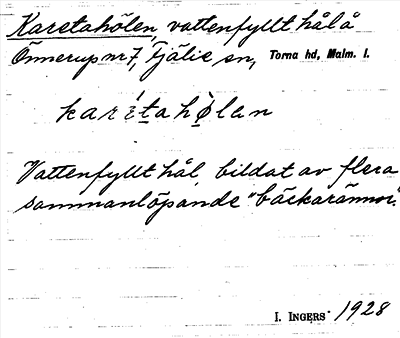 Karetahölen, vattenfyllt hål å
Önnerup nr 7, Fjälie sn, Torna hd, Malm. l.
karétahǿlan
Vattenfyllt hål, bildat av flera
sammanlöpande "bäckarännor".
I. INGERS 1928